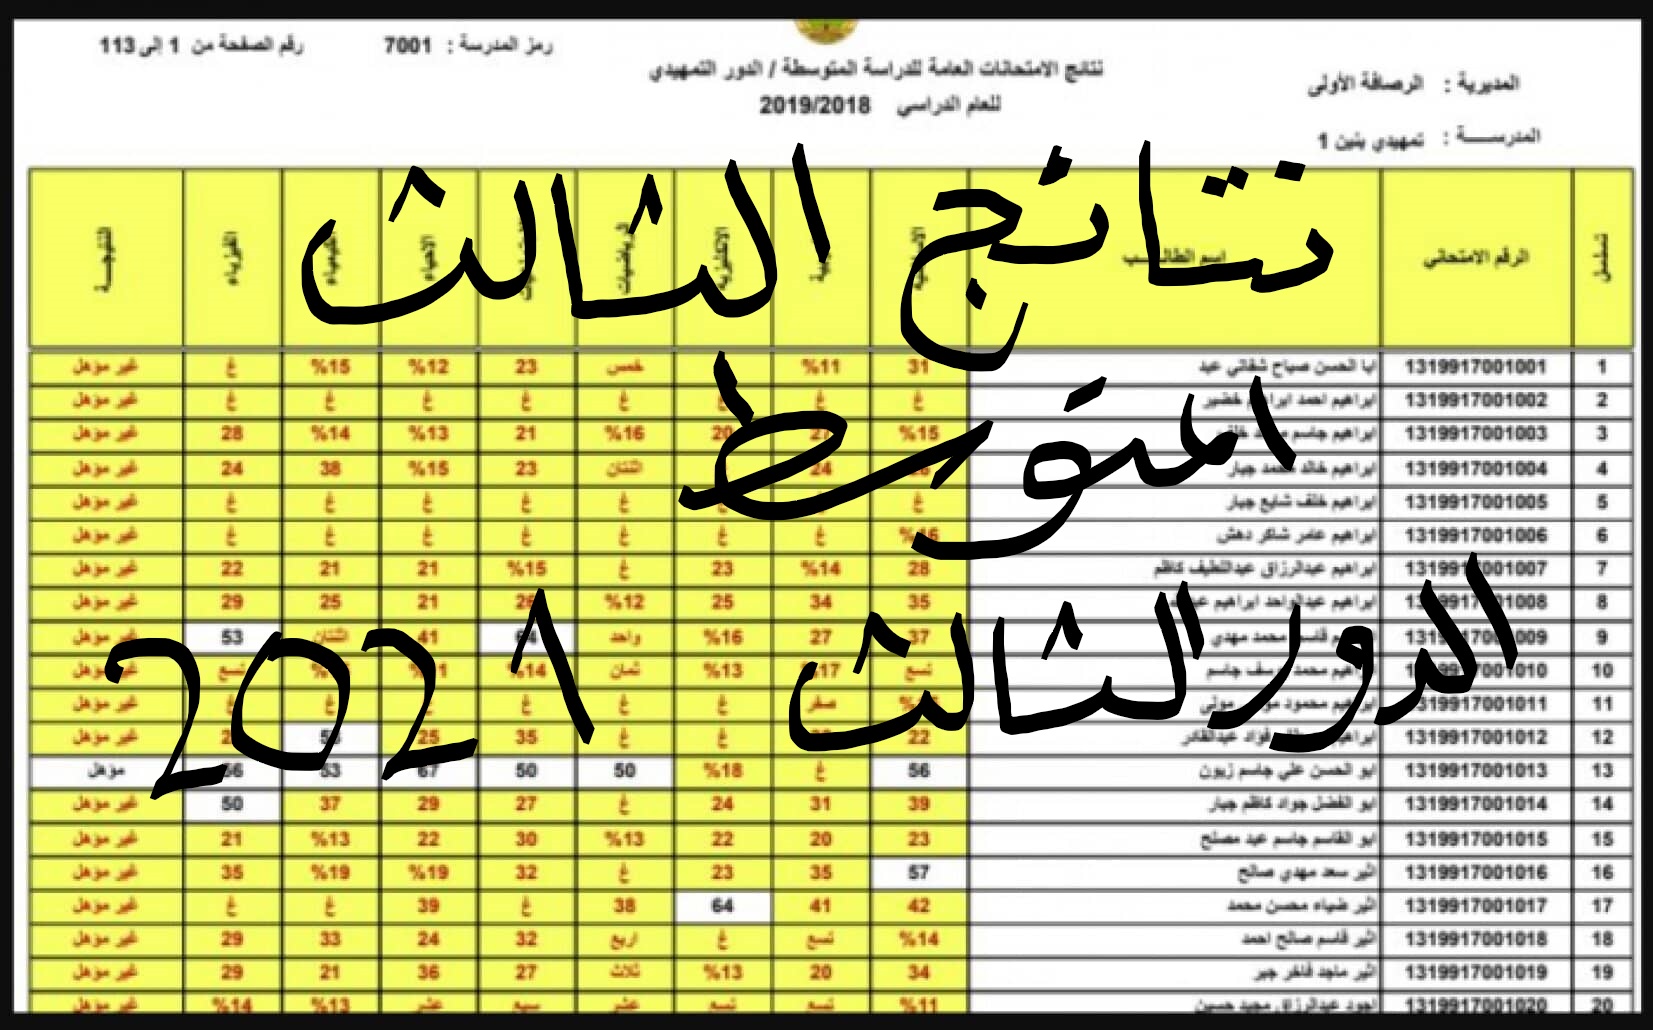 رقم الصفحة من 1 إلى 113
رمز المدرسة : 7001
نتائج الامتحانات العامة للدراسة المتوسطة / الدور التمهيدي
للعام الدراسي 2019/2018
المديرية : الرصافة الأولى
المدرســـة : تمهيدي بنين 1
نتائج الثالث
المتوسط
الدور الثالث 2021
تسلسل الرقم الامتحاني اسم الطالب الانكليزية الرياضيات الاحياء الكيمياء الفيزياء النتيجة
1 1319917001001 ابا الحسن صباح شفاتي عبد 31 %11 خمس 23 %12 %15 غ غير مؤهل
2 1319917001002 ابراهيم احمد خضير غ غ غ غ غ غ غير مؤهل
3 1319917001003 ابراهيم جاسم %15 %16 21 %13 %14 28 غير مؤهل
4 1319917001004 ابراهيم خالد محمد جبار 24 اثنتان 23 %15 38 24 غير مؤهل
5 1319917001005 ابراهيم خلف شايع جبار غ غ غ غ غ غ غير مؤهل
6 1319917001006 ابراهيم عامر شاكر دهش غ غ غ غ غ غ غير مؤهل
7 1319917001007 ابراهيم عبدالرزاق عبداللطيف كاظم 28 %14 23 غ %15 21 21 22 غير مؤهل
8 1319917001008 ابراهيم عبدالواحد ابراهيم 35 34 25 %12 26 21 25 29 غير مؤهل
9 قاسم محمد مهدي 37 27 %16 واحد 64 41 اثنتان 53 غير مؤهل
10 1319917001010 ابراهيم محمد يوسف جاسم تسع %17 %13 ثمان %14 تسع غير مؤهل
11 1319917001011 ابراهيم محمود صفر غ غ غ غ غ غير مؤهل
12 1319917001012 ابراهيم فؤاد عبدالقادر 22 غ غ 35 25 غير مؤهل
13 1319917001013 ابو الحسن علي جاسم زبون 56 غ %18 50 50 67 53 56 مؤهل
14 1319917001014 ابو الفضل جواد كاظم جبار 39 31 24 غ 27 29 37 50 غير مؤهل
15 1319917001015 ابو القاسم جاسم عبد مصلح 23 20 22 %13 30 22 %13 21 غير مؤهل
16 1319917001016 اثير سعد مهدي صالح 57 35 23 غ 32 %19 %19 35 غير مؤهل
17 1319917001017 اثير ضياء محسن محمد 42 41 64 38 غ 39 غ غ غير مؤهل
18 1319917001018 اثير قاسم صالح احمد %14 تسع غ اربع 32 24 33 29 غير مؤهل
19 1319917001019 اثير ماجد فاخر جبر 34 20 %13 ثلاث 27 36 21 29 غير مؤهل
20 1319917001020 اجود عبدالرزاق مجيد حسين %11 تسع تسع عشر سبع عشر %13 %14 غير مؤهل